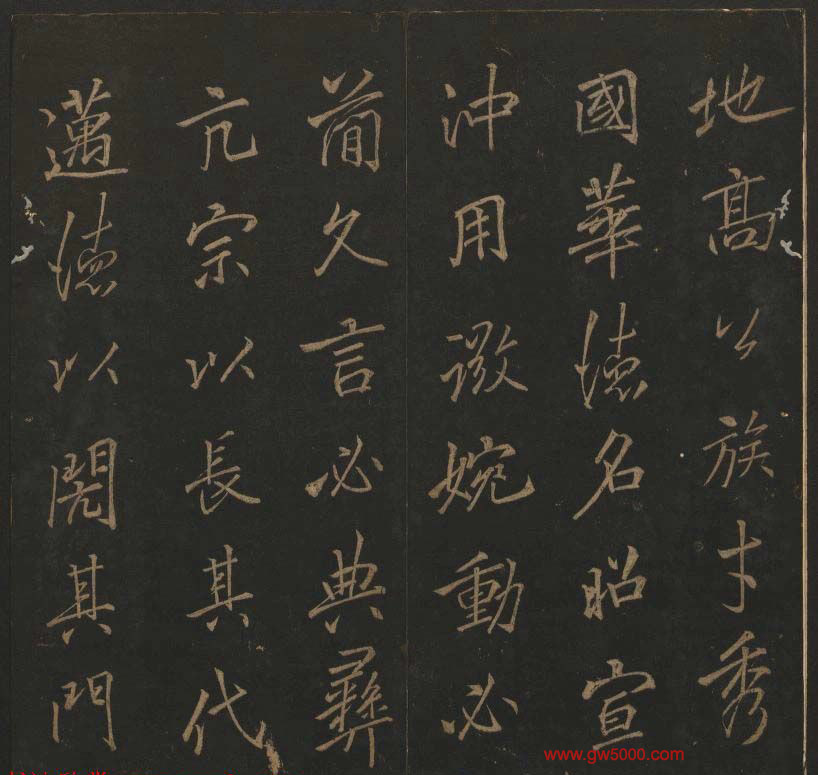 地高公族才秀
國華德名昭宣
沖用微婉動必
簡久言必典彝
亢宗以長其代
邁德以閌其門
www.gw5000.com